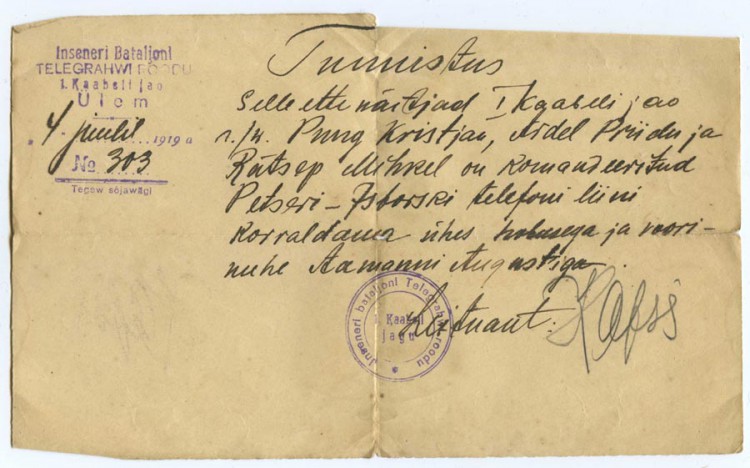 Inseneri Bataljoni
TELEGRAHWI ROODU
1. Kaabeli jao
Ülem
"4" juulil 1919 a
No 303
Tegew sõjawägi
Tunnistus
Selle ettenäitjad I Kaabeli jao
r./w. Pung Kristjan, Aidel Priidu ja
Rätsep Mihkel on komandeeritud
Petseri-Isborski telefoni liini
korraldama ühes hobusega ja woori-
mehe Aamanni Augustiga.
Leitnant
Inseneri bataljoni Telegrahwi roodu
1. Kaabeli
jagu